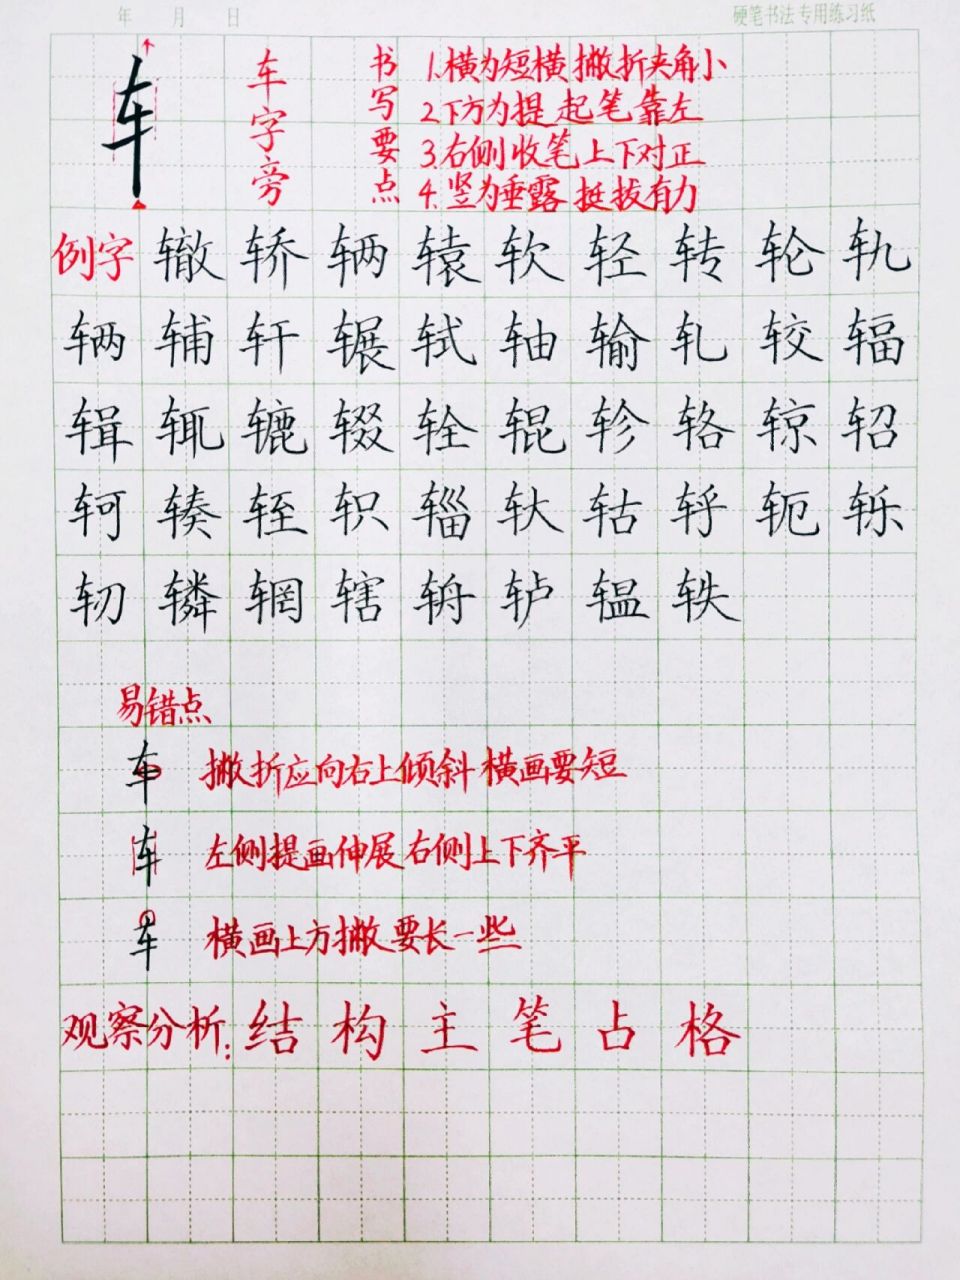 年 月 日 硬笔书法专用练习纸
车字旁
书写要点
1.横为短横 撇折夹角小
2.下方为提 起笔靠左
3.右侧收笔上下对正
4.竖为垂露 挺拔有力
例字 辙 轿 辆 辕 软 轻 转 轮 轨
辆 辅 轩 辗 轼 轴 输 轧 较 辐
辑 辄 辘 辍 轻 辊 轸 辂 辌 轺
轲 辏 轾 轵 辎 轪 轱 轷 轭 轹
轫 辚 辋 辖 辀 轳 辒 轶
易错点
撇折应向右上倾斜 横画要短
左侧提画伸展 右侧上下齐平
横画上方撇要长一些
观察分析:结构主笔占格